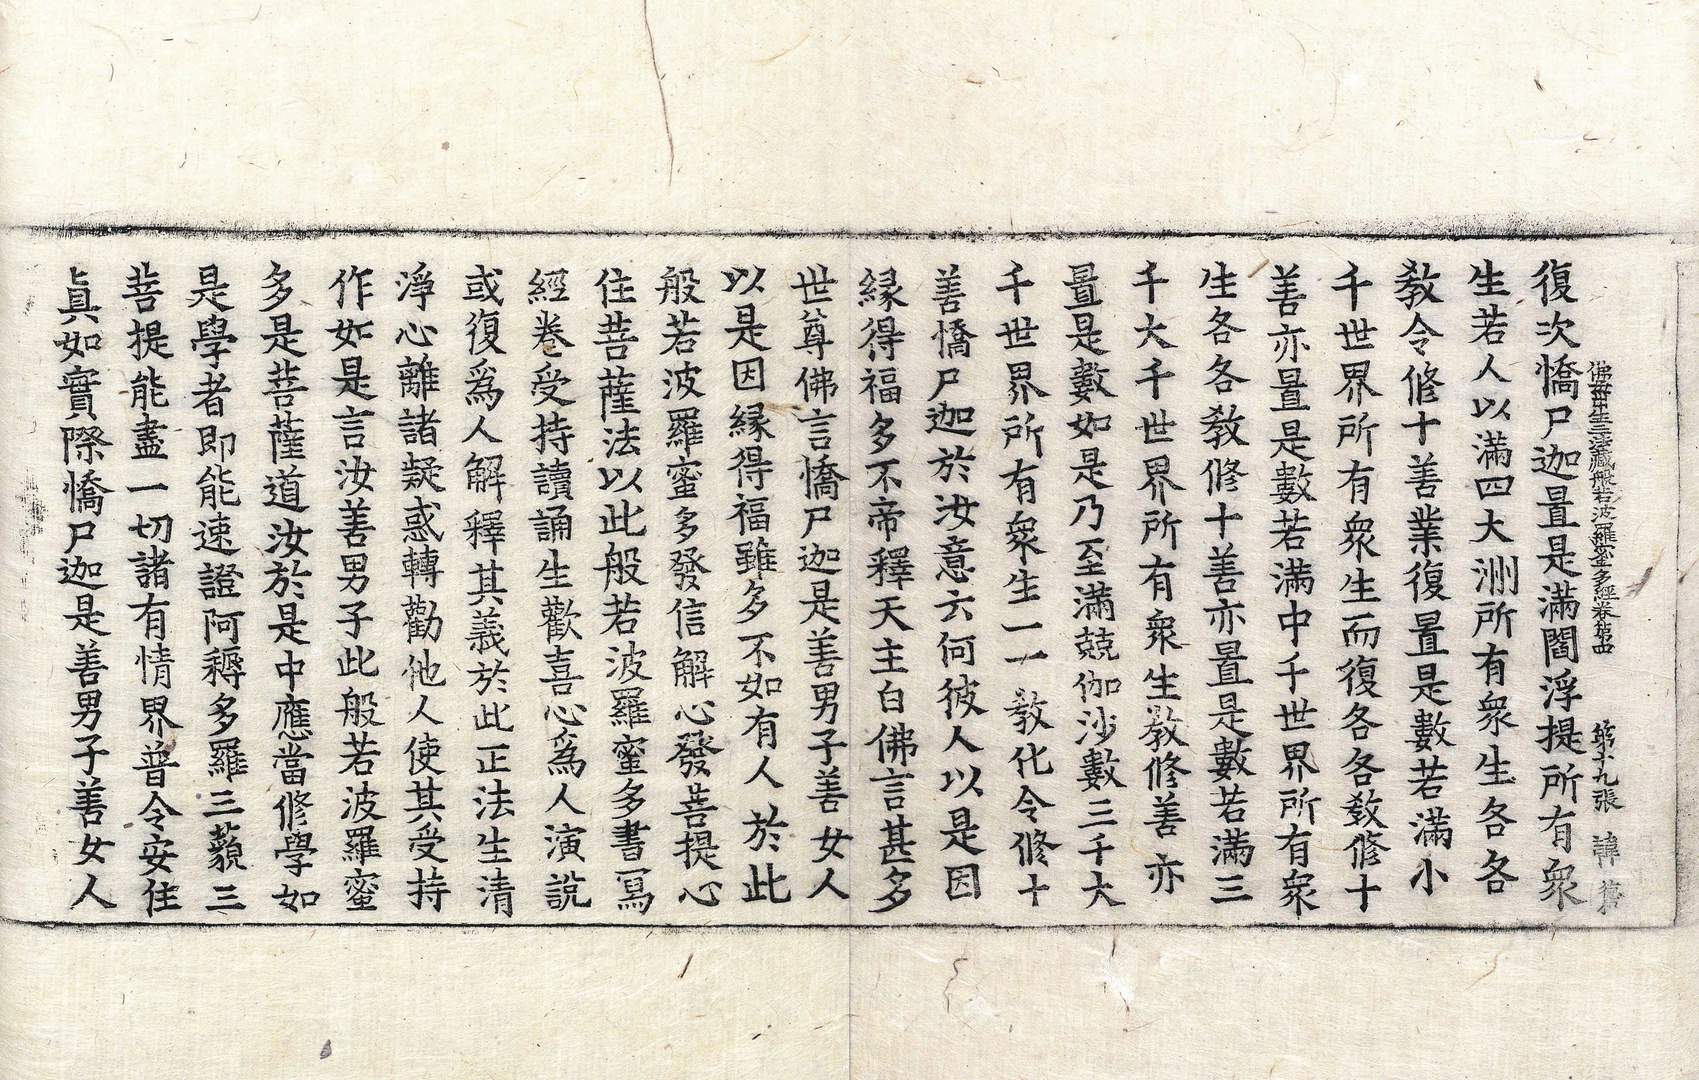 佛母出生三法藏般若波羅蜜多經卷第四　第十九張　諱
復次憍尸迦置是滿閻浮提所有衆
生若人以滿四大洲所有衆生各各
教令修十善業復置是數若滿小
千世界所有衆生而復各各教修十
善亦置是數若滿中千世界所有衆
生各各教修十善亦置是數若滿三
千大千世界所有衆生教修善亦
置是數如是乃至滿兢伽沙數三千大
千世界所有衆生一一教化令修十
善憍尸迦於汝意云何彼人以是因
緣得福多不帝釋天主白佛言甚多
世尊佛言憍尸迦是善男子善女人
以是因緣得福雖多不如有人於此
般若波羅蜜多發信解心發菩提心
住菩薩法以此般若波羅蜜多書寫
經卷受持讀誦生歡喜心爲人演說
或復爲人解釋其義於此正法生清
淨心離諸疑惑轉勸他人使其受持
作如是言汝善男子此般若波羅蜜
多是菩薩道汝於是中應當修學如
是學者即能速證阿耨多羅三藐三
菩提能盡一切諸有情界普令安住
眞如實際憍尸迦是善男子善女人